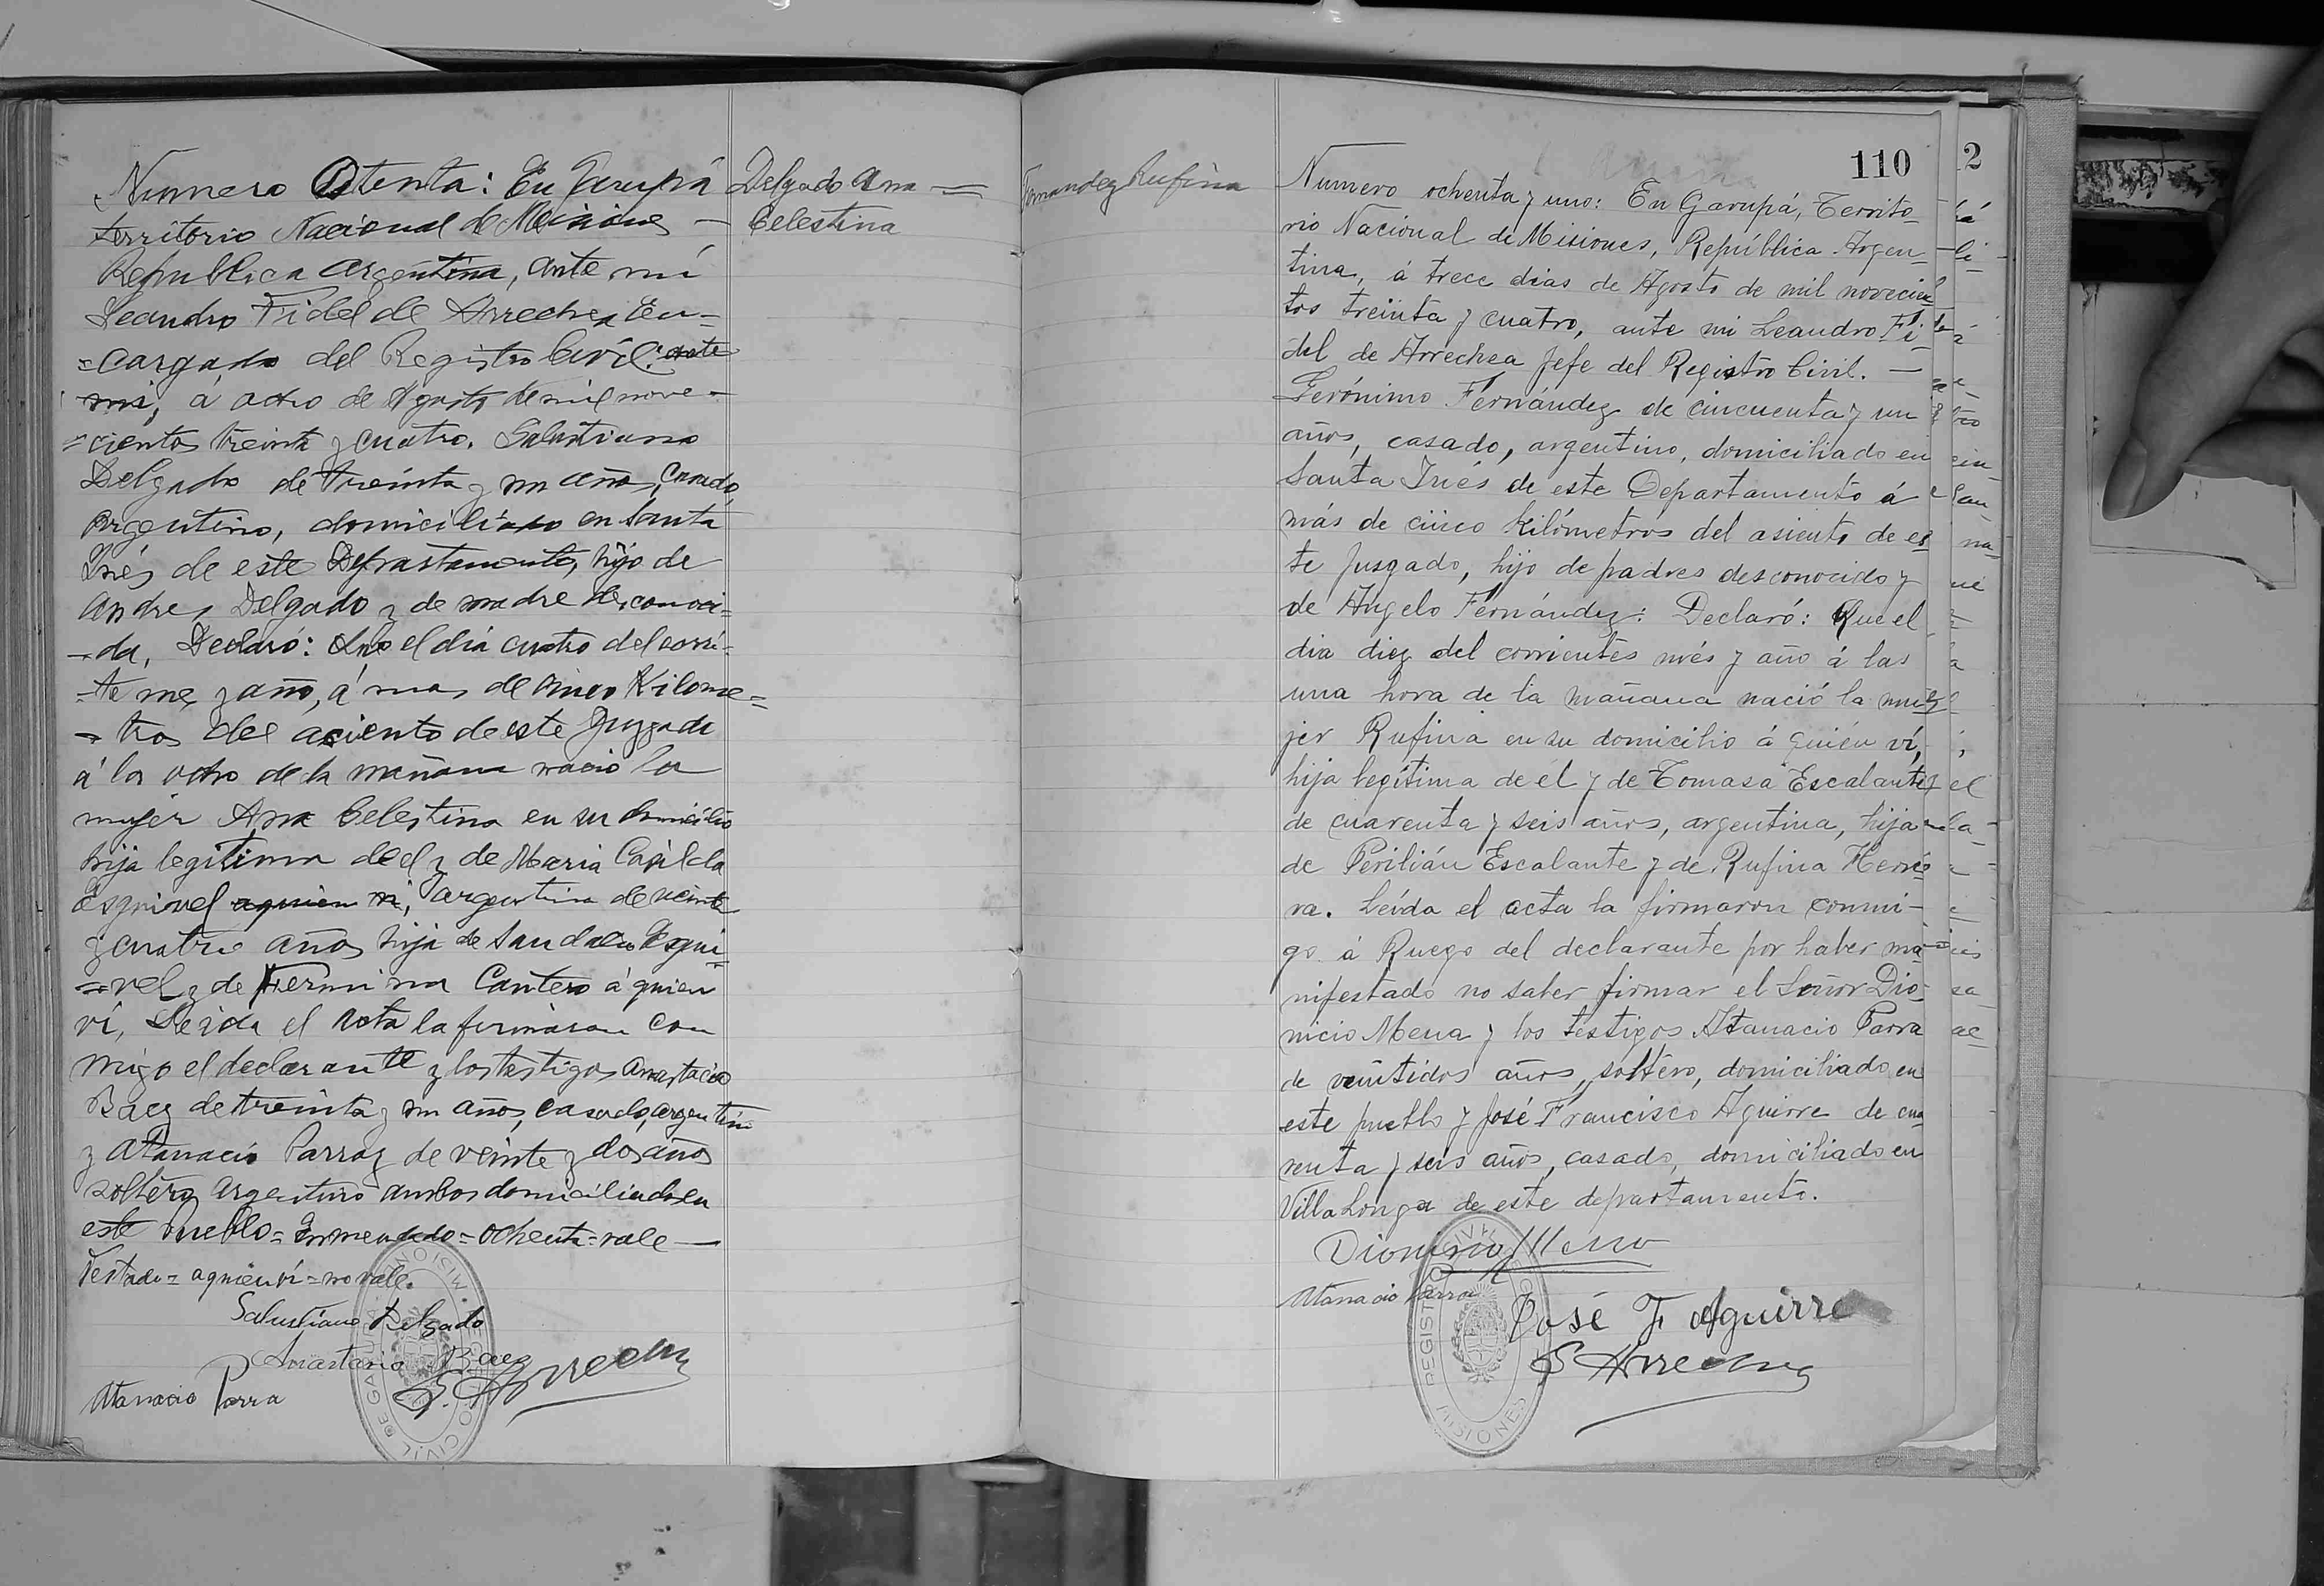 Numero Otenta: En Garupá
territorio Nacional de Misiones —
Republica Argentina, ante mí
Leandro Fidel de Arrechea En=
=cargado del Registro Civil: ante
mi, á ocho de Agosto de mil nove=
=cientos treinta y cuatro. Salustiano
Delgado de treinta y un años, casado,
Argentino, domiciliado en Santa
Inés de este Departamento, hijo de
Andres Delgado y de madre desconoci=
=da, Declaró: Que el día cuatro del corri=
=te mes y año, á mas de cinco Kilome=
=tros del aciento de este Juzgado
á las ocho de la mañana nació la
mujer Ana Celestina en su domicilio
hija legitima de el y de Maria Casilda
Esquivel aquien vi, argentina de veinte
y cuatro años hija de Sandalio Esqui=
=vel y de Fermina Cantero á quien
ví, Leida el acta la firmaron con
migo el declarante y los testigos Anastacio
Baez de treinta y un años, casado, argentino
y Atanacio Parra de veinte y dos años
soltero argentino ambos domiciliados en
este Pueblo = Enmendado = ochenta = vale —
Testado = aquien ví = no vale.
Salustiano Delgado
Anastacio Baez
Atanacio Parra
F. Arrechea
REGISTRO CIVIL DE GARUPA MISIONES
Delgado Ana —
Celestina
Fernandez Rufina
110
Numero ochenta y uno: En Garupá, Territo-
rio Nacional de Misiones, República Argen-
tina, á trece dias de Agosto de mil novecien
tos treinta y cuatro, ante mi Leandro Fi-
del de Arrechea Jefe del Registro Civil. —
Gerónimo Fernández de cincuenta y un
años, casado, argentino, domiciliado en
Santa Inés de este Departamento á
más de cinco kilómetros del asiento de es
te Jusgado, hijo de padres desconocido y
de Angelo Fernández: Declaró: Que el
dia diez del corrientes més y año á las
una hora de la mañana nació la mu-
jer Rufina en su domicilio á quién ví,
hija legítima de él y de Tomasa Escalante
de cuarenta y seis años, argentina, hija
de Perilián Escalante y de Rufina Herre
ra. Leída el acta la firmaron conmi-
go á Ruego del declarante por haber ma-
nifestado no saber firmar el Señor Dio-
nicio Mena y los testigos Atanacio Parra
de veintidos años, soltero, domiciliado en
este pueblo y José Francisco Aguirre de cua
renta y seis años, casado, domiciliado en
Villa Longa de este departamento.
Dionisio Mena
Atanacio Parra
José F Aguirre
F Arrechea
REGISTRO CIVIL MISIONES
2